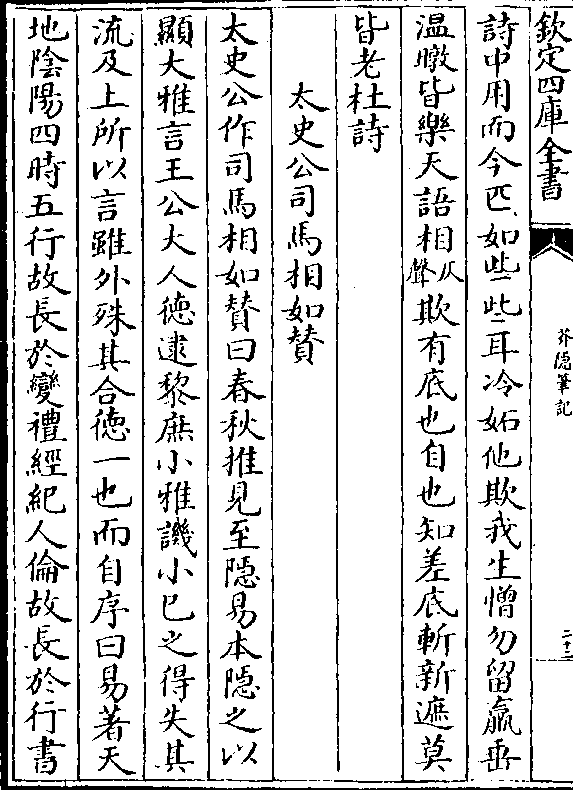 欽定四庫全書
芥隠筆記
二十二
詩中用而今匹如些些耳冷妬他欺我生憎勿留贏垂
温暾皆樂天語相仄聲欺有底也自也知差底斬新遮莫
皆老杜詩
太史公司馬相如賛
太史公作司馬相如賛曰春秋推見至隠易本隠之以
顯大雅言王公大人徳逮黎庶小雅譏小己之得失其
流及上所以言雖外殊其合徳一也而自序曰易著天
地隂陽四時五行故長於變禮經紀人倫故長於行書